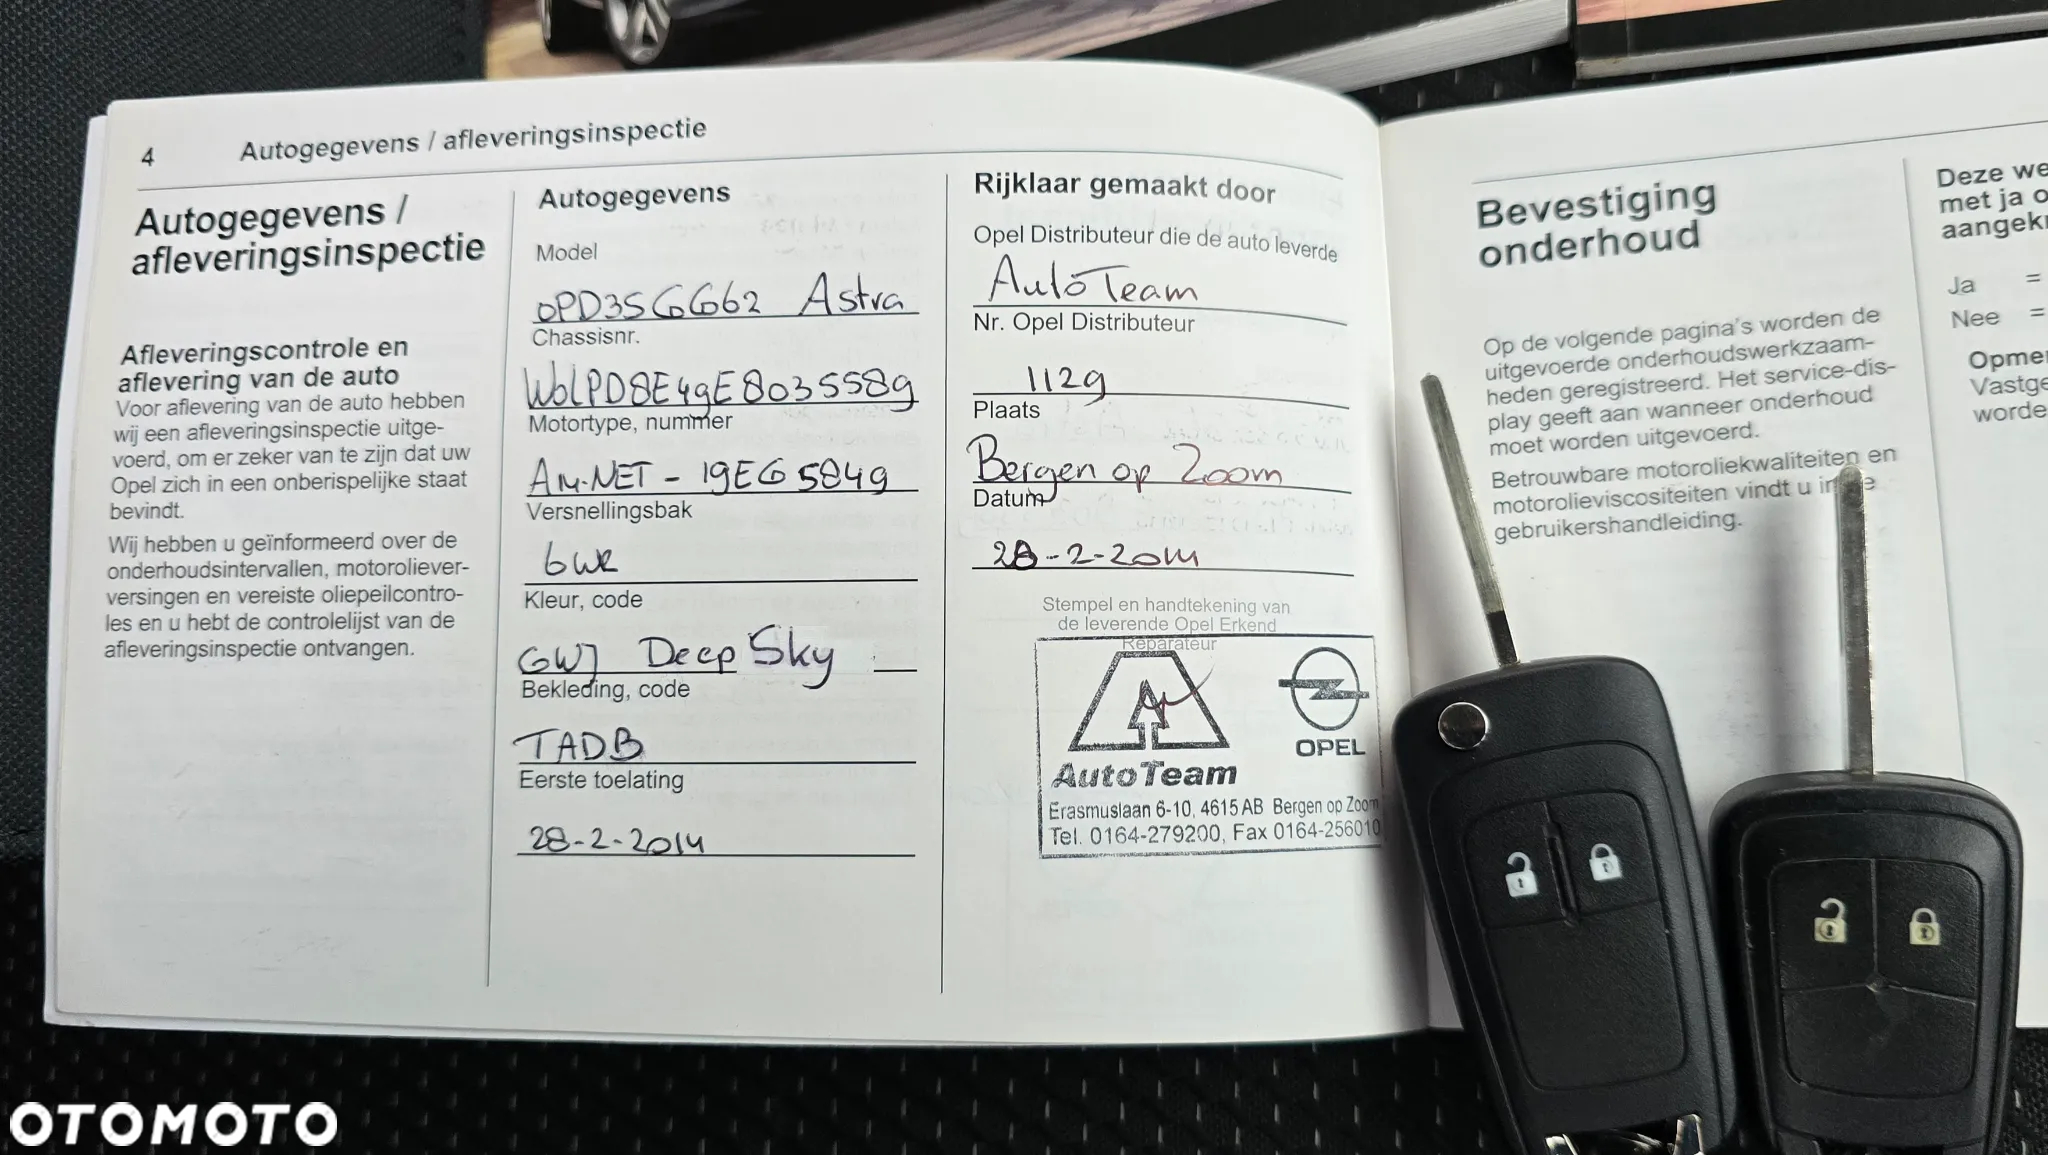 4 Autogegevens / afleveringsinspectie
Autogegevens /
afleveringsinspectie
Afleveringscontrole en
aflevering van de auto
Voor aflevering van de auto hebben
wij een afleveringsinspectie uitge-
voerd, om er zeker van te zijn dat uw
Opel zich in een onberispelijke staat
bevindt.
Wij hebben u geïnformeerd over de
onderhoudsintervallen, motoroliever-
versingen en vereiste oliepeilcontro-
les en u hebt de controlelijst van de
afleveringsinspectie ontvangen.
Autogegevens
Model
OPD35GG62 Astra
Chassisnr.
W0LPD8E49E8035589
Motortype, nummer
A14NET - 19EG5849
Versnellingsbak
Kleur, code
GWJ Deep Sky
Bekleding, code
TADB
Eerste toelating
28-2-2014
Rijklaar gemaakt door
Opel Distributeur die de auto leverde
AutoTeam
Nr. Opel Distributeur
1129
Plaats
Bergen op Zoom
Datum
28-2-2014
Stempel en handtekening van
de leverende Opel Erkend
Reparateur
OPEL
AutoTeam
Erasmuslaan 6-10, 4615 AB Bergen op Zoom
Tel. 0164-279200, Fax 0164-256010
Bevestiging
onderhoud
Op de volgende pagina's worden de
uitgevoerde onderhoudswerkzaam-
heden geregistreerd. Het service-dis-
play geeft aan wanneer onderhoud
moet worden uitgevoerd.
Betrouwbare motoroliekwaliteiten en
motorolieviscositeiten vindt u in
gebruikershandleiding.
Deze we
met ja o
aangek
Ja =
Nee =
Opme
Vastge
worde
OTOMOTO